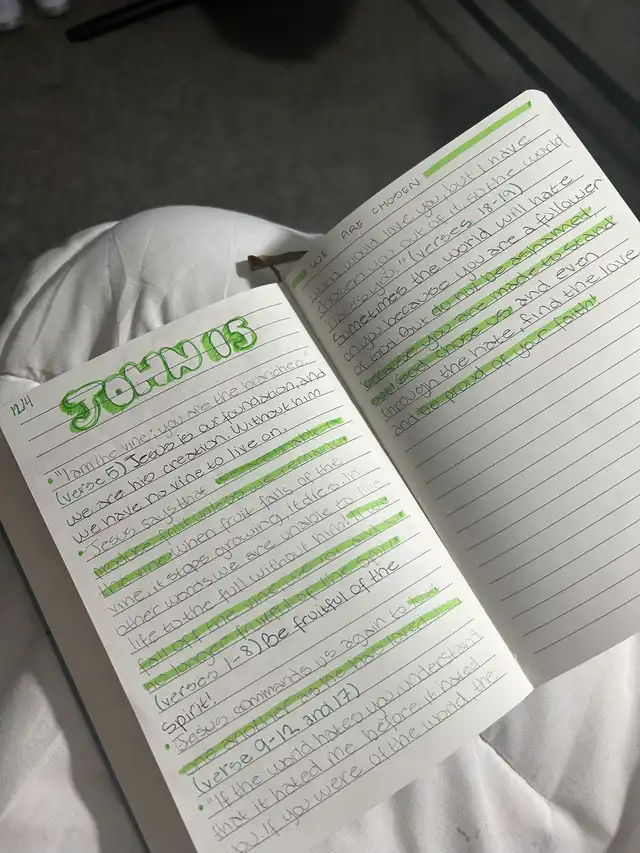 12/4
JOHN 15
• "I am the vine; you are the branches"
(verse 5) Jesus is our foundation, and
we are his creation. Without him
we have no vine to live on.
• Jesus says that
produce fruit unless we remain
When fruit falls of the
vine, it stops growing, it dies. in
other words, we are unable to live
life to the full without him.
fall off the vine we rot and are
no longer fruitful of the spirit
(verses 1-8) Be fruitful of the
spirit!
• Jesus commands us again to
one another as he has loved
(verse 9-12 and 17)
• "If the world hates you, understand
that it hated me before it hated
you. If you were of the world, the
WE ARE CHOSEN
world would love you, but I have
chosen you out of it, so the world
hates you." (verses 18-19)
Sometimes the world will hate
on you because you are a follower
of God. But do not be ashamed,
because you are made to stand
out. God chose us and even
through the hate, find the love
and be proud of your faith!